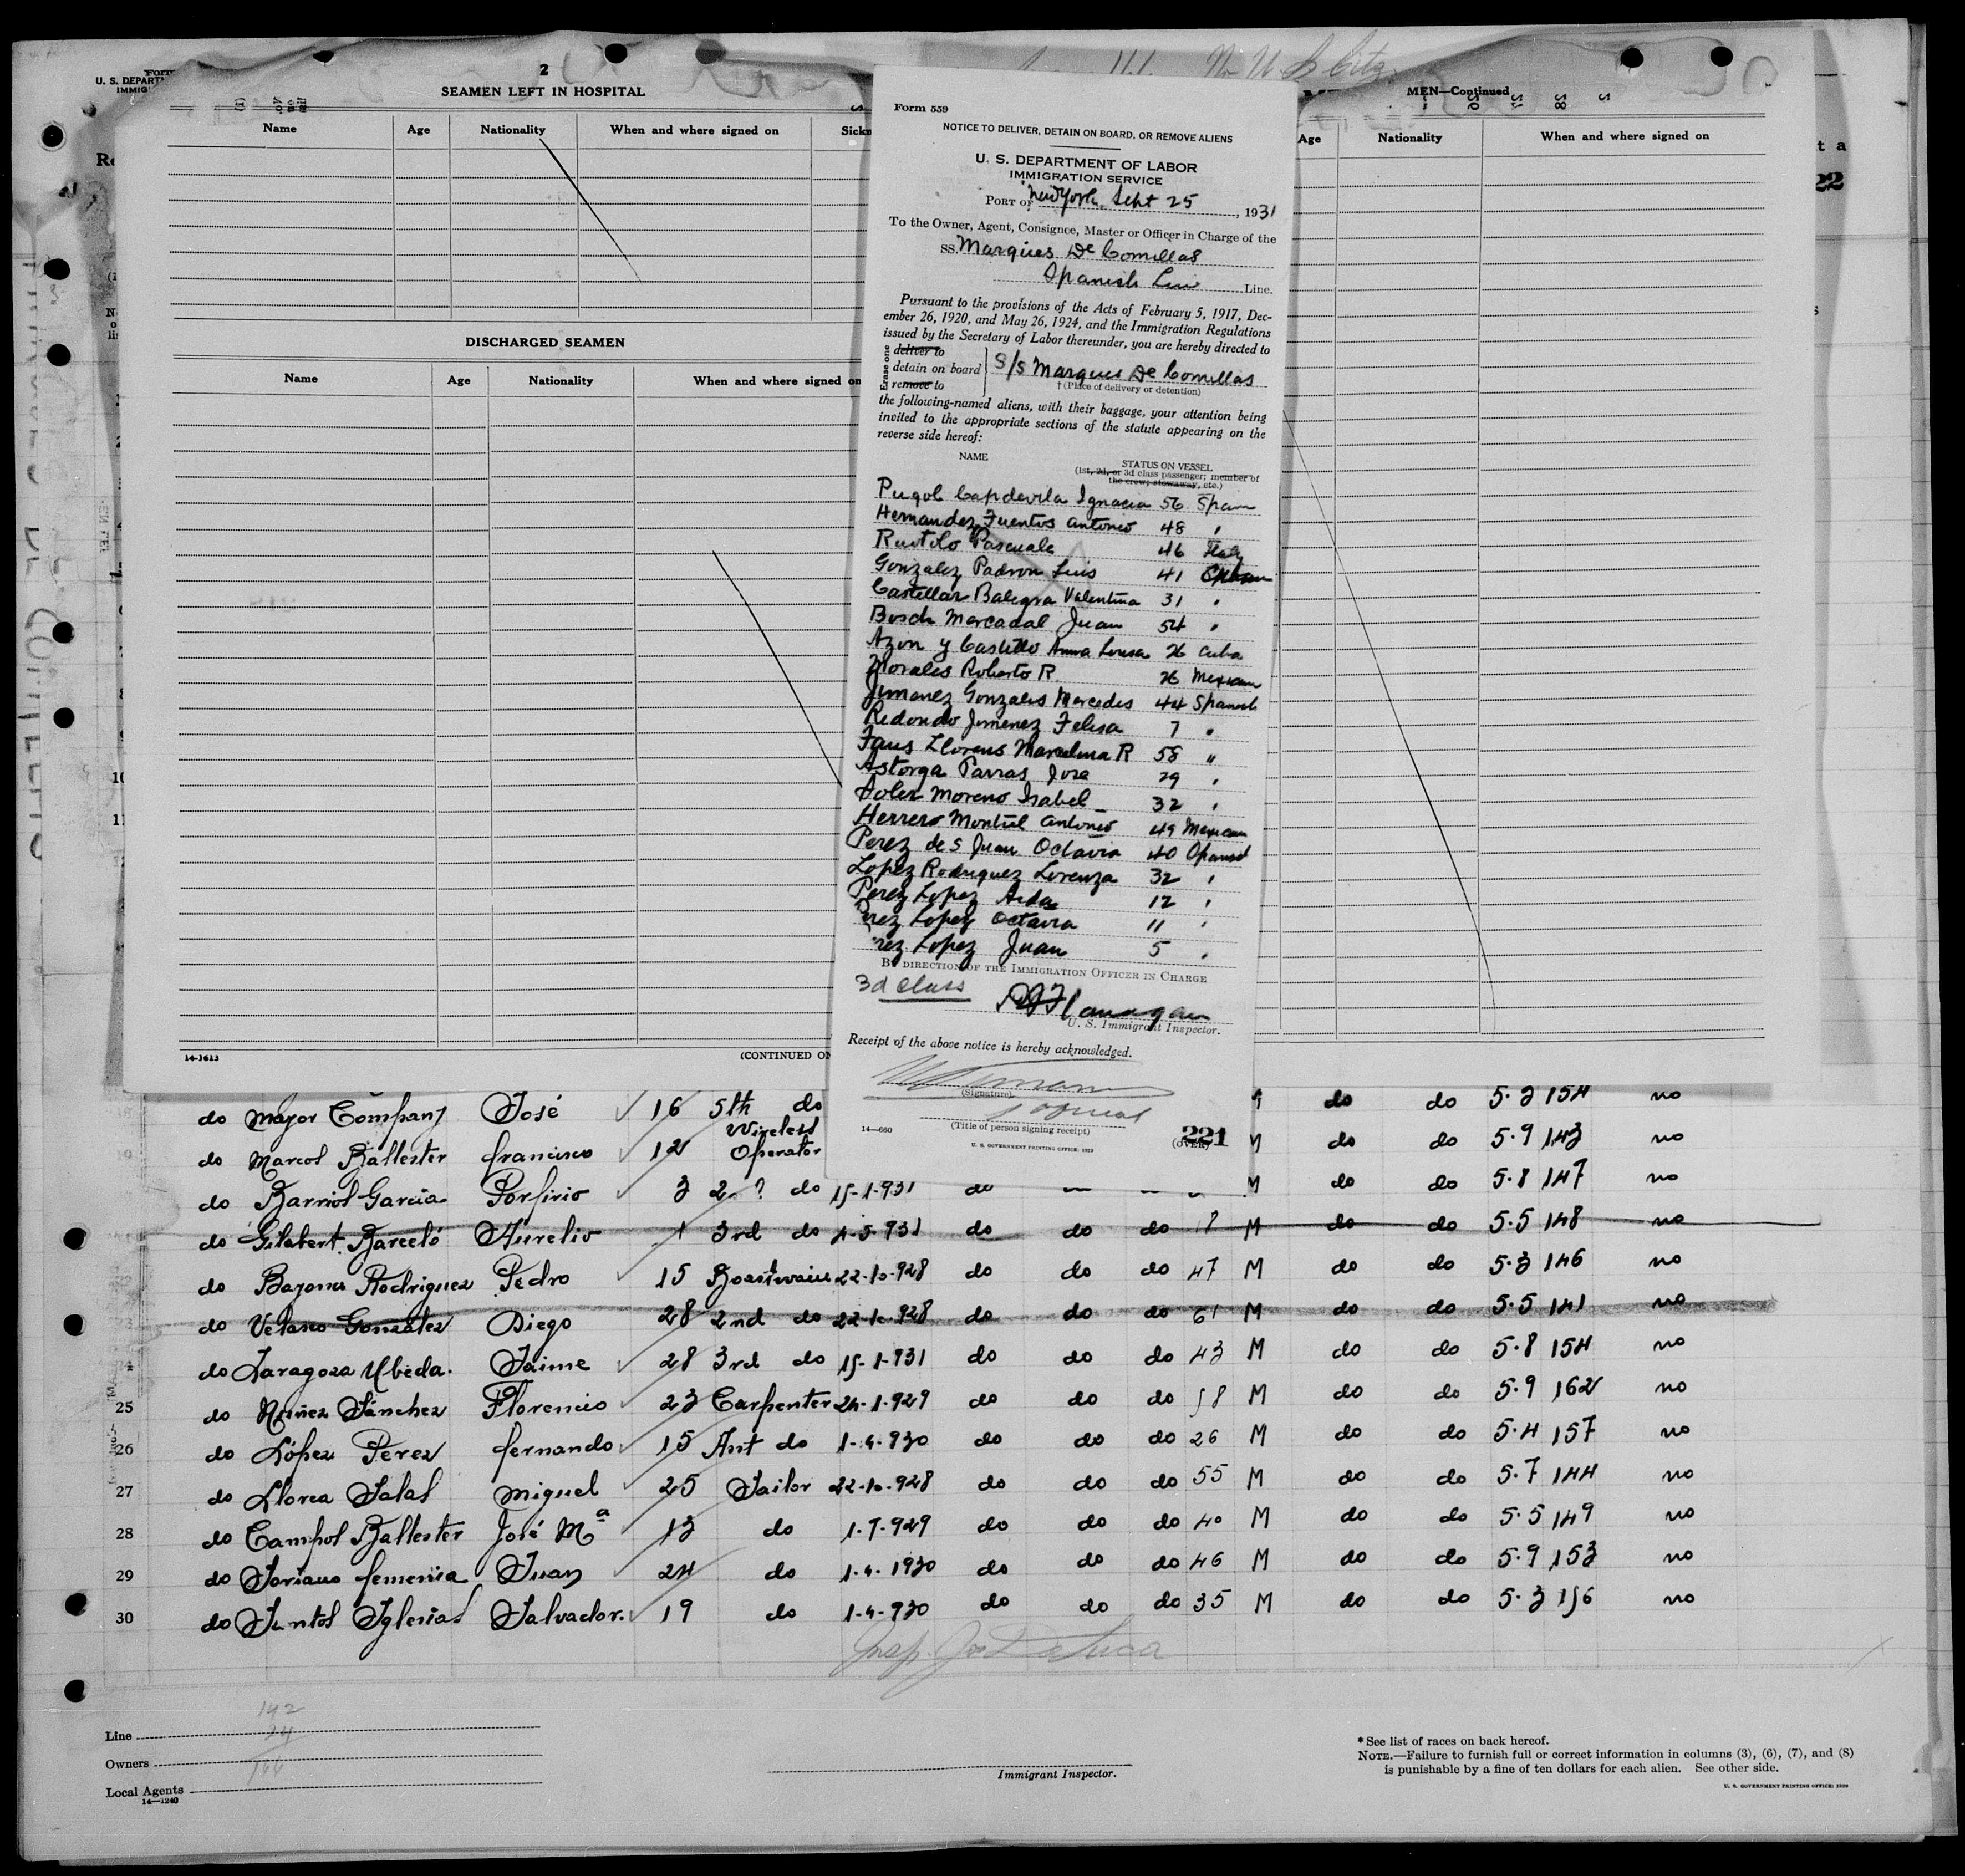 2
SEAMEN LEFT IN HOSPITAL
Name Age Nationality When and where signed on
DISCHARGED SEAMEN
Name Age Nationality When and where signed on
14-1613
(CONTINUED ON
MEN—Continued
Age Nationality When and where signed on
Form 559
NOTICE TO DELIVER, DETAIN ON BOARD, OR REMOVE ALIENS
U. S. DEPARTMENT OF LABOR
IMMIGRATION SERVICE
PORT OF New York Sept 25, 1931
To the Owner, Agent, Consignee, Master or Officer in Charge of the
SS. Marques De Comillas
Spanish Line Line.
Pursuant to the provisions of the Acts of February 5, 1917, Dec-
ember 26, 1920, and May 26, 1924, and the Immigration Regulations
issued by the Secretary of Labor thereunder, you are hereby directed to
Erase one
deliver to
detain on board
remove to
S/S Marques De Comillas
† (Place of delivery or detention)
the following-named aliens, with their baggage, your attention being
invited to the appropriate sections of the statute appearing on the
reverse side hereof:
NAME STATUS ON VESSEL
(1st, 2d, or 3d class passenger; member of
the crew; stowaway, etc.)
Pugol Capdevila Ignacia 56 Spain
Hernandez Fuentes Antonio 48 "
Ruotolo Pascuale 46 Italy
Gonzalez Padron Luis 41
Castellar Balegra Valentina 31 "
Bosch Mercadal Juan 54 "
Azon y Castillo Anna Louisa 26 Cuba
Morales Roberto R 26 Mexican
Jimenez Gonzales Mercedes 44 Spanish
Redondo Jimenez Felisa 7 "
Faus Llorens Marcelina R 58 "
Astorga Parras Jose 29 "
Soler Moreno Isabel 32 "
Herrero Montiel Antonio 49 Mexican
Perez de S Juan Octavio 40 Spanish
Lopez Rodriguez Lorenza 32 "
Perez Lopez Aida 12 "
Perez Lopez Octavia 11 "
rez Lopez Juan 5 "
BY DIRECTION OF THE IMMIGRATION OFFICER IN CHARGE
3d class
Flanagan
U. S. Immigrant Inspector.
Receipt of the above notice is hereby acknowledged.
(Signature)
(Title of person signing receipt)
14—660
U. S. GOVERNMENT PRINTING OFFICE: 1929
(OVER)
221
do Mayor Company José 16 5th do do do 5.3 154 no
do Marcol Ballester francisco 12 Wireless Operator M do do 5.9 143 no
do Barriol Garcia Porfirio 3 2 ? do 15-1-931 do M do do 5.8 147 no
do Gilabert Barceló Aurelio 1 3rd do 4-5-931 do do do M do do 5.5 148 no
do Bazona Rodriguez Pedro 15 Boastwain 22-10-928 do do do 47 M do do 5.3 146 no
do Velasco Gonzalez Diego 28 2nd do 22-10-928 do do do 61 M do do 5.5 141 no
do Zaragoza Ubeda. Jaime 28 3rd do 15-1-931 do do do 43 M do do 5.8 154 no
25 do Núñez Sánchez Florencio 23 Carpenter 24-1-929 do do do 58 M do do 5.9 162 no
26 do López Perez fernando 15 Ant do 1-4-930 do do do 26 M do do 5.4 157 no
27 do Llorca Salas Miguel 25 Sailor 22-10-928 do do do 55 M do do 5.7 144 no
28 do Campol Ballester José Mª 13 do 1-7-929 do do do 40 M do do 5.5 149 no
29 do Soriano femenia Juan 24 do 1-4-1930 do do do 46 M do do 5.9 153 no
30 do Santos Iglesias Salvador. 19 do 1-4-930 do do do 35 M do do 5.3 156 no
142
24
166
Line
Owners
Local Agents
14—1240
Immigrant Inspector.
* See list of races on back hereof.
NOTE.—Failure to furnish full or correct information in columns (3), (6), (7), and (8)
is punishable by a fine of ten dollars for each alien. See other side.
U. S. GOVERNMENT PRINTING OFFICE: 1929